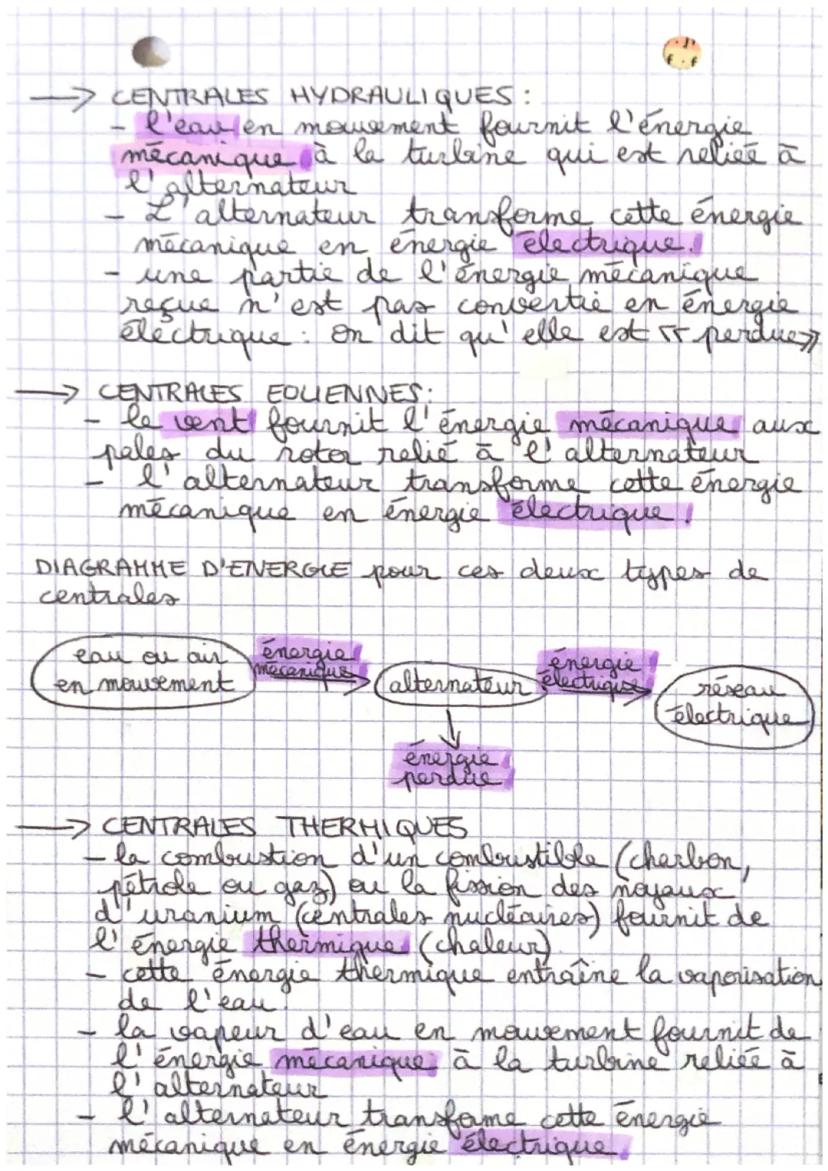 → CENTRALES HYDRAULIQUES :
- l'eau en mouvement fournit l'énergie
mécanique à la turbine qui est reliée à
l'alternateur
- L'alternateur transforme cette énergie
mécanique en énergie électrique.
- une partie de l'énergie mécanique
reçue n'est pas convertie en énergie
électrique : on dit qu'elle est « perdue »
→ CENTRALES EOLIENNES :
- le vent fournit l'énergie mécanique aux
pales du rotor relié à l'alternateur
- l'alternateur transforme cette énergie
mécanique en énergie électrique.
DIAGRAMME D'ENERGIE pour ces deux types de
centrales
eau ou air
en mouvement
énergie
mécanique
alternateur
énergie
électrique
réseau
électrique
énergie
perdue
→ CENTRALES THERMIQUES
- la combustion d'un combustible (charbon,
pétrole ou gaz) ou la fission des noyaux
d'uranium (centrales nucléaires) fournit de
l'énergie thermique (chaleur)
- cette énergie thermique entraîne la vaporisation
de l'eau.
- la vapeur d'eau en mouvement fournit de
l'énergie mécanique à la turbine reliée à
l'alternateur
- l'alternateur transforme cette énergie
mécanique en énergie électrique.